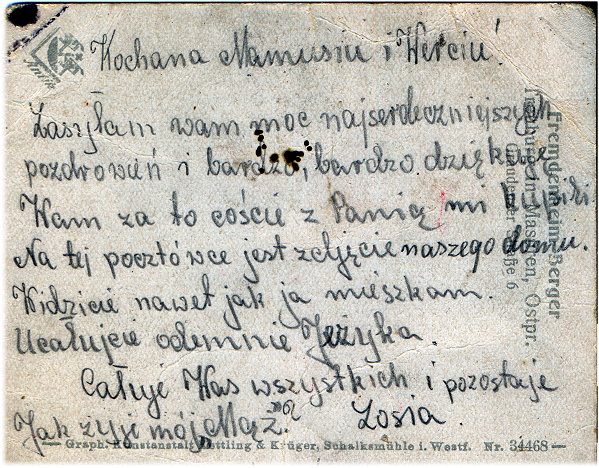 Kochana Mamusiu i Werciu!
Zasyłam wam moc najserdeczniejszych
pozdrowień i bardzo, bardzo dziękuję
Wam za to coście z Panią mi kupiły
Na tej pocztówce jest zdjęcie naszego domu.
Widzicie nawet jak ja mieszkam.
Ucałujcie odemnie Jeżyka.
Całuje Was wszystkich i pozostaje
Jak żyje mój Mąż? Zosia.
Fremdenheim Berger
Masuren, Ostpr.
Straße 6
Graph. Kunstanstalt Hettling & Krüger, Schalksmühle i. Westf. Nr. 34468